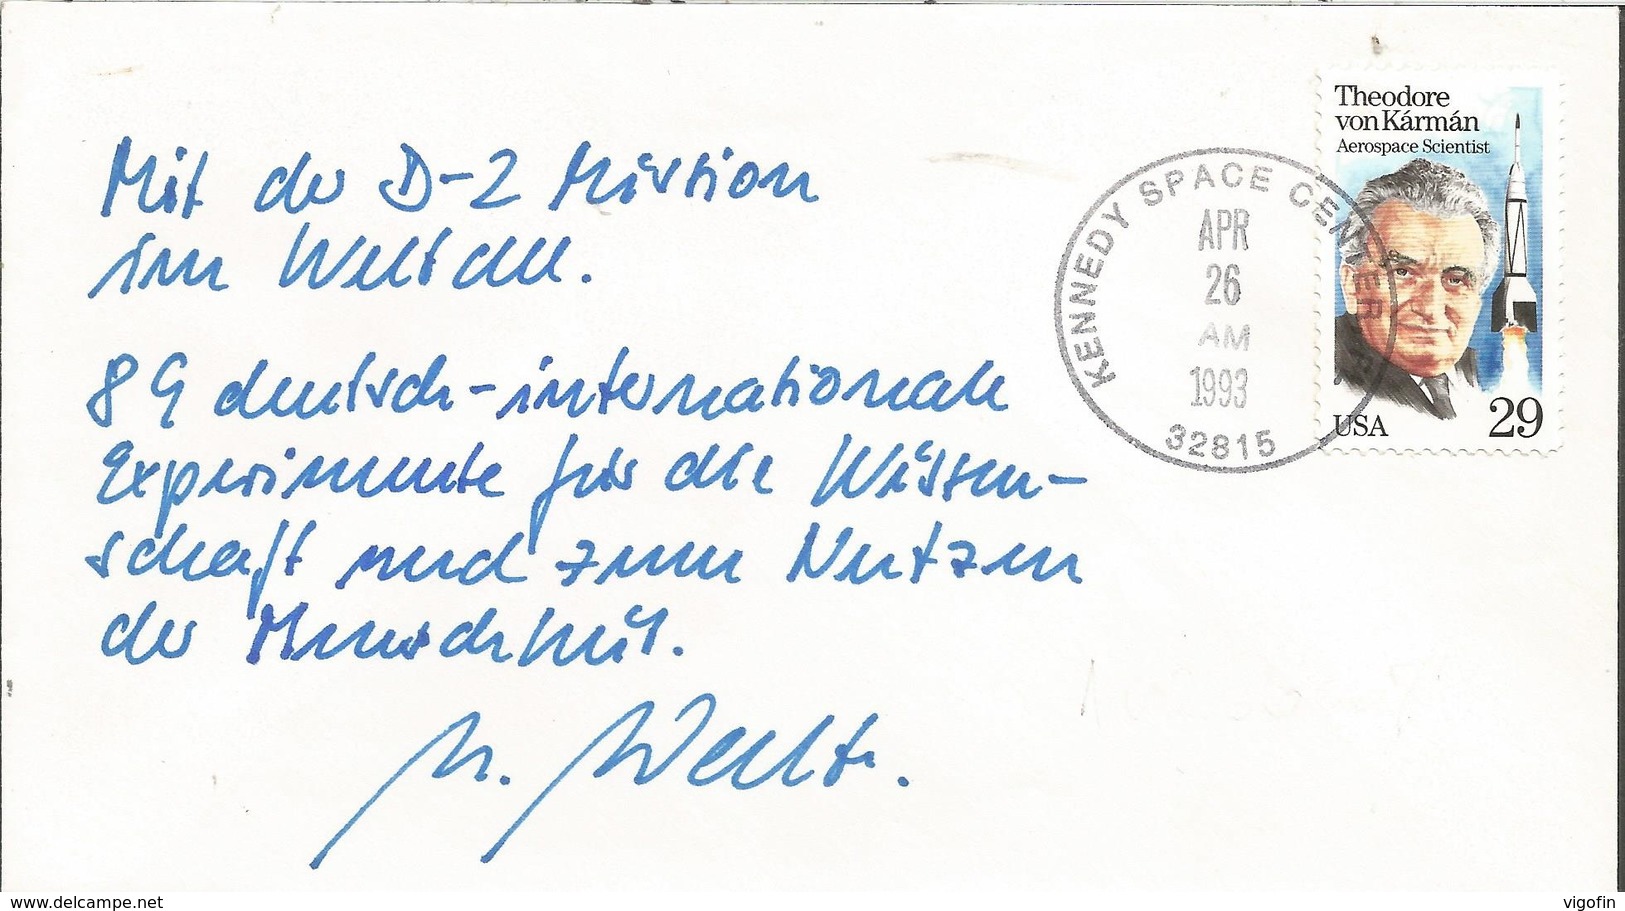 Mit der D-2 Mission
im Weltall.
89 deutsch-internationale
Experimente für die Wissen-
schaft und zum Nutzen
der Menschheit.
KENNEDY SPACE CENTER
APR
26
AM
1993
32815
Theodore
von Kármán
Aerospace Scientist
USA 29
www.delcampe.net
vigofin